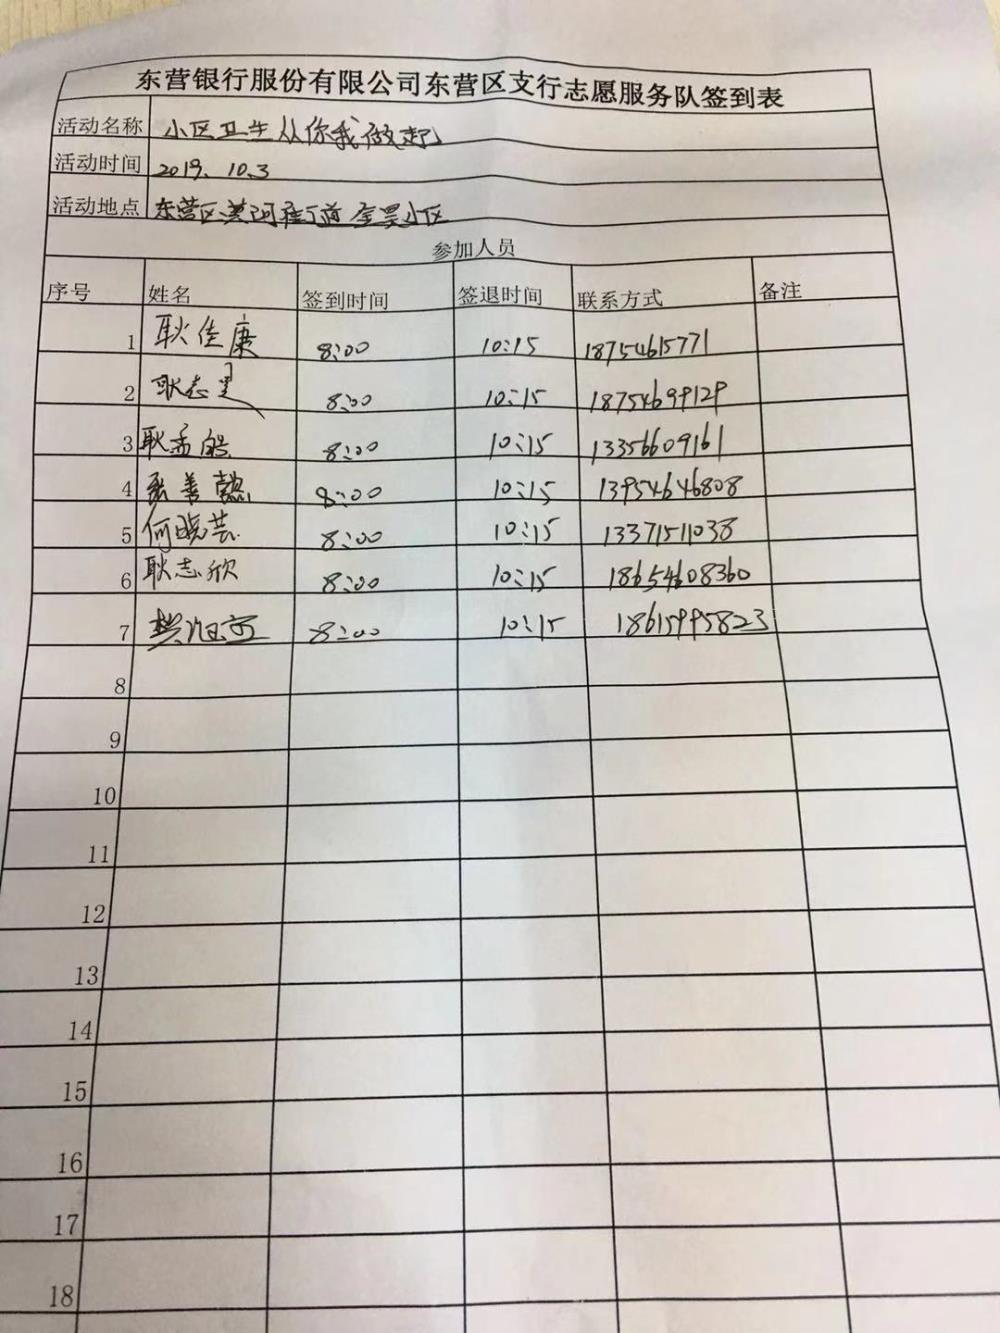 东营银行服份有限公司东营区支行志愿服务队签到表
活动名称 小区卫生从你我做起
活动时间 2019.10.3
活动地点 东营区黄河街道 金昊小区
参加人员
序号 姓名 签到时间 签退时间 联系方式 备注
1 耿佳康 8:00 10:15 18754615771
2 耿志 8:00 10:15 18754699129
3 耿孟皓 8:00 10:15 13356609161
4 善懿 8:00 10:15 13954646808
5 何晓芸 8:00 10:15 13371511038
6 耿志欣 8:00 10:15 18654608360
7 樊 8:00 10:15 18615995823
8
9
10
11
12
13
14
15
16
17
18